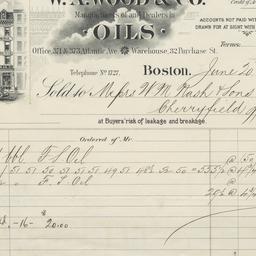 W. A. WOOD & CO.
Credit of
Manufacturers of and Dealers in
ACCOUNTS NOT PAID WI
DRAWN FOR AT SIGHT WITH
OILS
Terms:
Office, 371 & 373 Atlantic Ave. Warehouse, 32 Purchase St.
Telephone No 1727. Boston. June 20
Sold to Messrs W M Nash & Sons
Cherryfield
at Buyers' risk of leakage and breakage.
Ordered of Mr.
bbl F S Oil @ 50
51 51 50 51 51 51 49 51 48½ 52 50 = 555½ @
" " F. S Oil @
50½ @
-16- $20.00